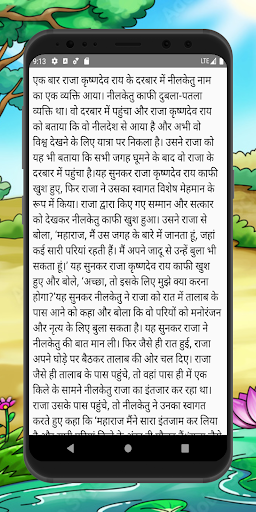 9:13
LTE
एक बार राजा कृष्णदेव राय के दरबार में नीलकेतु नाम
का एक व्यक्ति आया। नीलकेतु काफी दुबला-पतला
व्यक्ति था। वो दरबार में पहुंचा और राजा कृष्णदेव राय
को बताया कि वो नीलदेश से आया है और अभी वो
विश्व देखने के लिए यात्रा पर निकला है। उसने राजा को
यह भी बताया कि सभी जगह घूमने के बाद वो राजा के
दरबार में पहुंचा है।यह सुनकर राजा कृष्णदेव राय काफी
खुश हुए, फिर राजा ने उसका स्वागत विशेष मेहमान के
रूप में किया। राजा द्वारा किए गए सम्मान और सत्कार
को देखकर नीलकेतु काफी खुश हुआ। उसने राजा से
बोला, ‘महाराज, मैं उस जगह के बारे में जानता हूं, जहां
कई सारी परियां रहती हैं। मैं अपने जादू से उन्हें बुला भी
सकता हूं।’ यह सुनकर राजा कृष्णदेव राय काफी खुश
हुए और बोले, ‘अच्छा, तो इसके लिए मुझे क्या करना
होगा?’यह सुनकर नीलकेतु ने राजा को रात में तालाब के
पास आने को कहा और बोला कि वो परियों को मनोरंजन
और नृत्य के लिए बुला सकता है। यह सुनकर राजा ने
नीलकेतु की बात मान ली। फिर जैसे ही रात हुई, राजा
अपने घोड़े पर बैठकर तालाब की ओर चल दिए। राजा
जैसे ही तालाब के पास पहुंचे, तो वहां पास ही में एक
किले के सामने नीलकेतु राजा का इंतजार कर रहा था।
राजा उसके पास पहुंचे, तो नीलकेतु ने उनका स्वागत
करते हुए कहा कि ‘महाराज मैंने सारा इंतजाम कर लिया